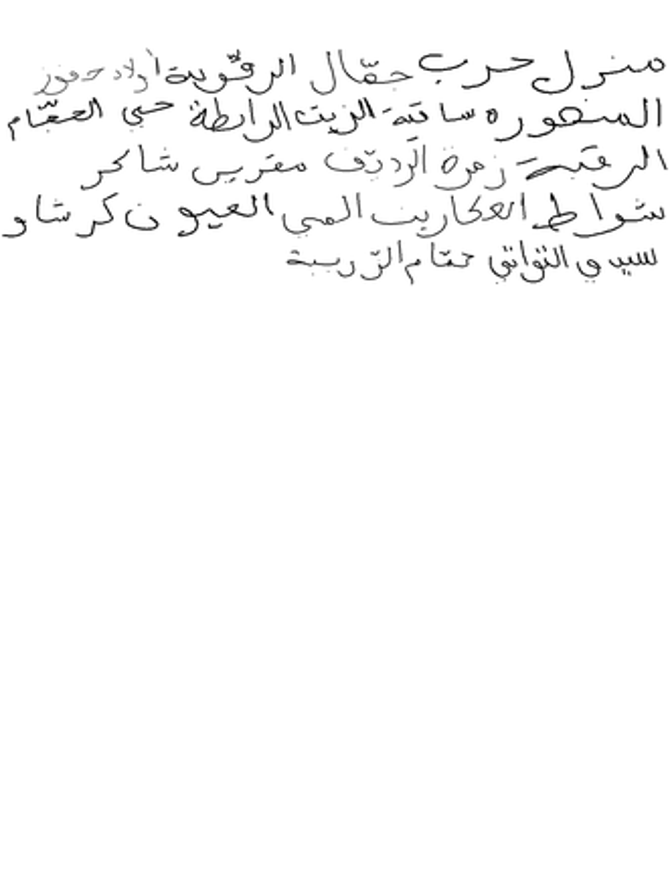 منزل حرب حقّال الرقّوبة أولاد حفوز
المنصورة ساقية الزيت الرابطة حيي الحجّام
الرقبة زمرة الرديّف مقرين شاكر
شواط العكاريت المي العيون كرشاو
سيدي التواتي حمّام الزريبة